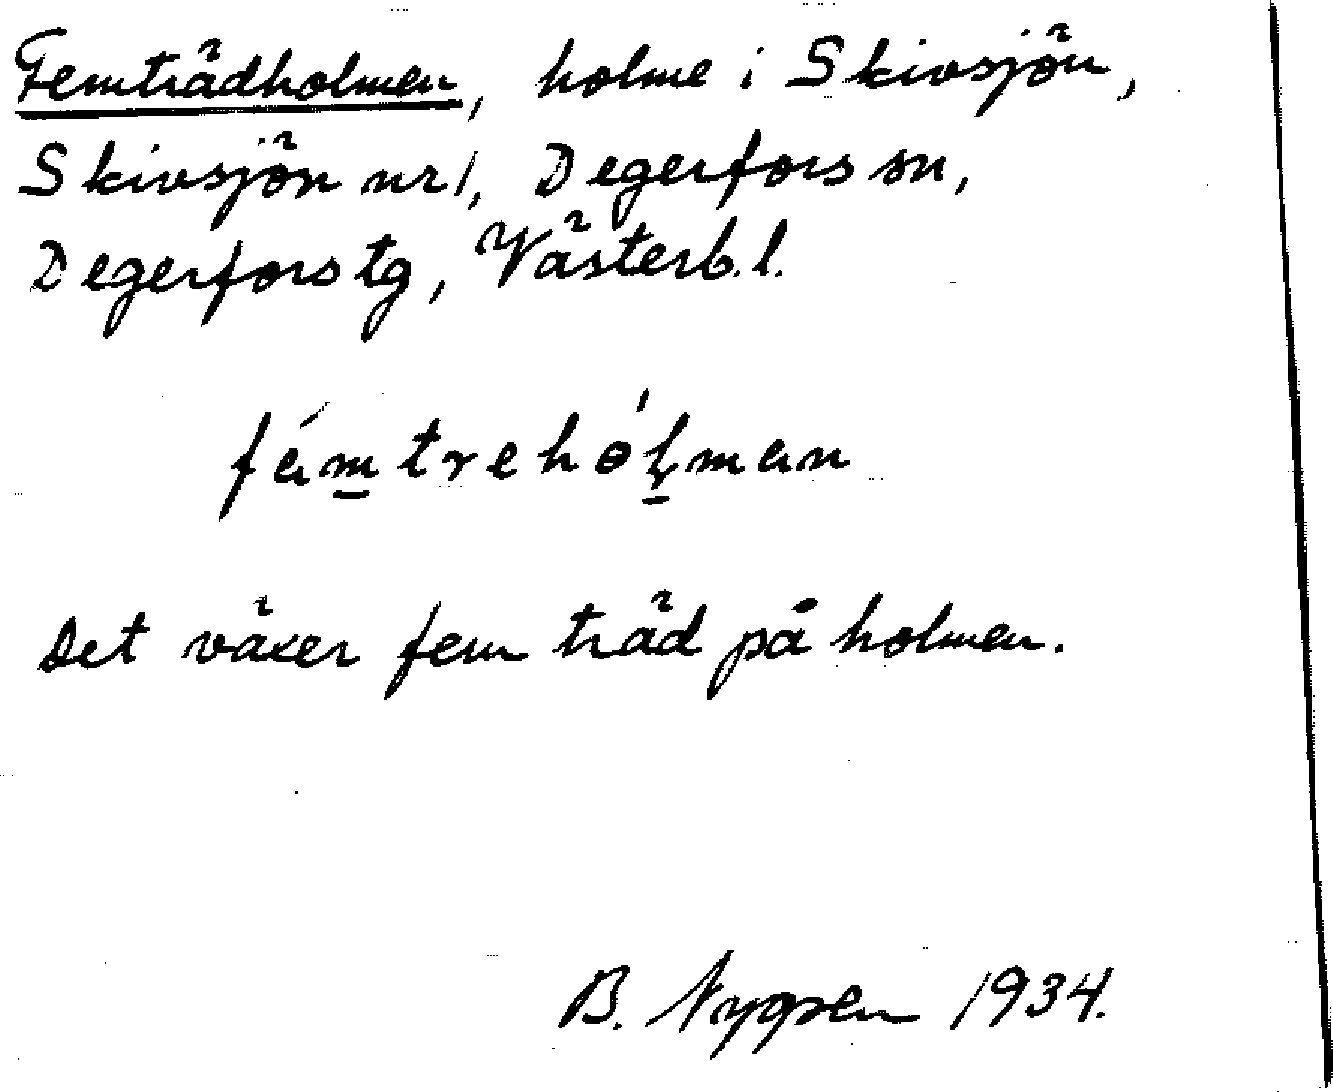 Femträdholmen, holme i Skivsjön,
Skivsjön nr 1, Degerfors sn,
Degerfors tg, Västerb.l.
fámtrehól̥man
Det växer fem träd på holmen.
B. Nygren 1934.